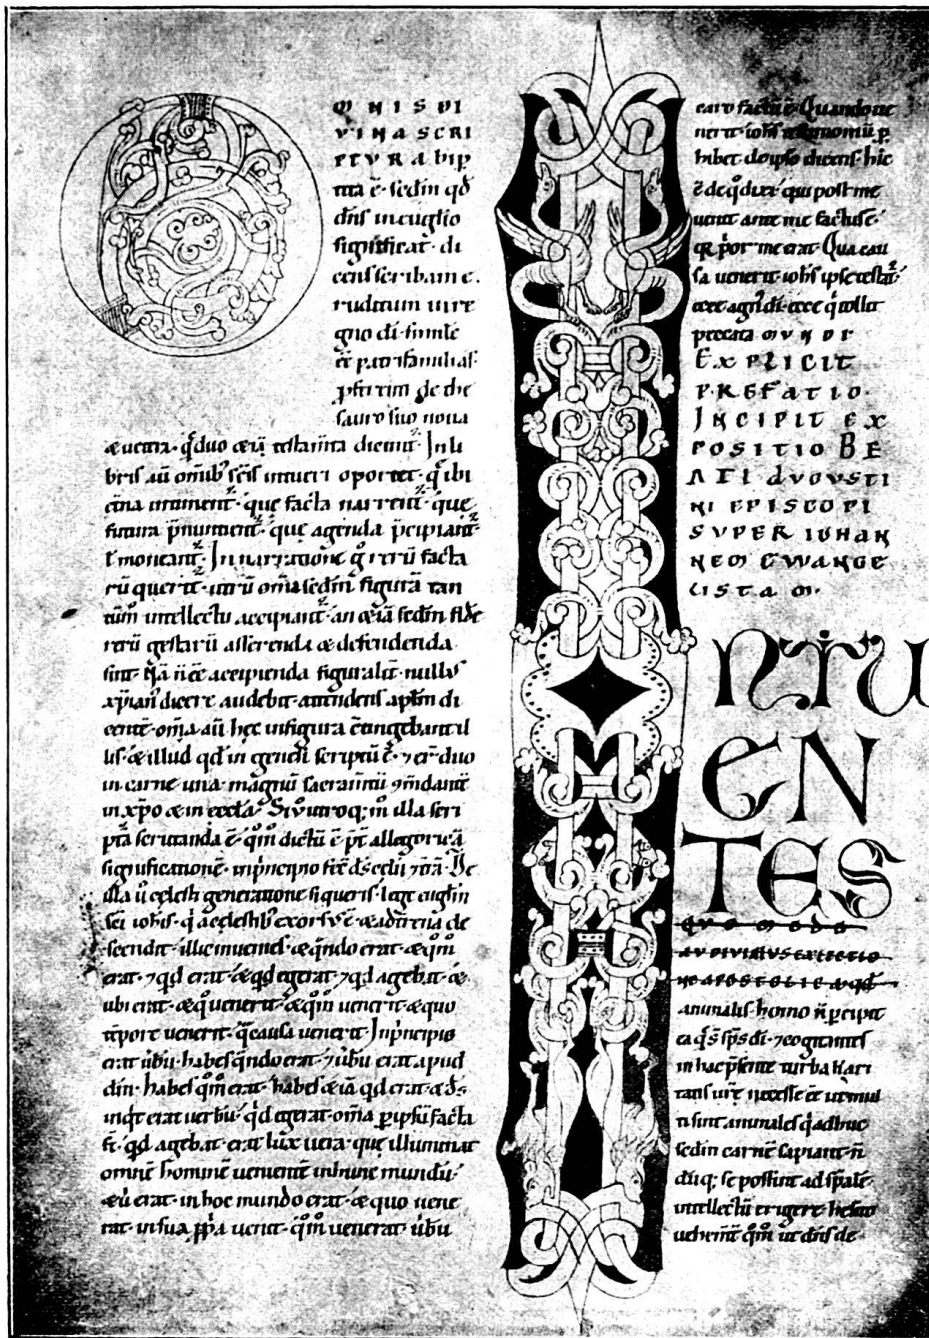 OMNIS DI
VINA SCRI
PTVRA bip
tita ē· sedm qđ
dn̄s in euglio
significat· di
cens scribam e
ruditum in re
gno di· simile
ēē patrifamilias
pferrim de the
sauro suo noua
& uetera· q̄ duo &iā testam̄ta dicunt᷑· In li
bris aū omīb; sc̄is intueri oportet· q̄ ibi
et̄na intiment᷑· que facta narrent᷑· que
futura p̄nuntient᷑· que agenda p̄cipiant᷑
ł moneant᷑· In narratione g̊ rerū facta
rū querit᷑· utrū om̄a sedm figurā tan
tūm intellectu accipiant᷑· an &iā sedm fidē
rerū gestarū asserenda & defendenda
sint· nullus
xp̄ian dicere audebit· attendens aptm di
centē· om̄a aū hec in figura c̄tingebant il
lis· & illud qđ in genesi scriptū ē· 7 er̄ duo
in carne una· magnū sacram̄tū c̄mdante
in xp̄o & in eccta· Si utroq; m̊ illa scri
pta scrutanda ē· q̊m dictū ē p̄t allegoricā
significationē· in principio fec̄ ds̄ celū
illa ū celesti generatione si queris· lege euglm
sc̄i ioh̄is· q̄ a celestib; exorsus ē & ad tr̄ena de
scendit· illic inuenies· & q̄ndo erat· & q̊m
erat· 7 qđ erat· & qđ egerat· 7 qđ agebat· &
ubi erat· & q̊ uenerit· & q̊m uenerit· & quo
tēpore uenerit· q̄ causa uenerit· In p̄ncipio
erat ūbū· habes q̄ndo erat· 7 ūbū erat apud
dm̄· habes q̊m erat· habes &iā qđ erat· & ds̄
inqt erat uerbū· qđ egerat· om̄a p ipsū facta
st̄· qđ agebat· erat lux uera· que illuminat
omnē hominē uenientē in hunc mundū·
& ū erat· in hoc mundo erat· & quo uene
rat· in sua ppa uenit· q̊m uenerat· ūbū
caro factū ē· Quando ue
nerit· ioh̄s p
hibet· de ipso dicens· hic
ē de q̊ dixi· qui post me
uenit ante me factus ē·
q̄ p̊or me erat· Qua cau
sa uenerit· ioh̄s ipse testat᷑·
ecce agn̄ di· ecce q̄ tollit
peccata MVNDI
EXPLICIT
PREFATIO.
INCIPIT EX
POSITIO BE
ATI AVGVSTI
NI EPISCOPI
SVPER IOHAN
NEM EWANGE
LISTAM.
NTU
EN
TES
QVO MODO
AVDIVIMVS EX LECTIO
NE APOSTOLICA qđ
animalis homo n̄ pcipit
ea q̄ s̄ sp̄s di· 7 cogitantes
in hac p̄sente turba kari
tatis ur̄ę necesse ēē ut mul
ti sint animales q̄ adhuc
sedm carnē sapiant· n̄
dūq; se possint ad sp̄ale
intellectū erigere· hesito
uehem̄t q̊m ut dn̄s de